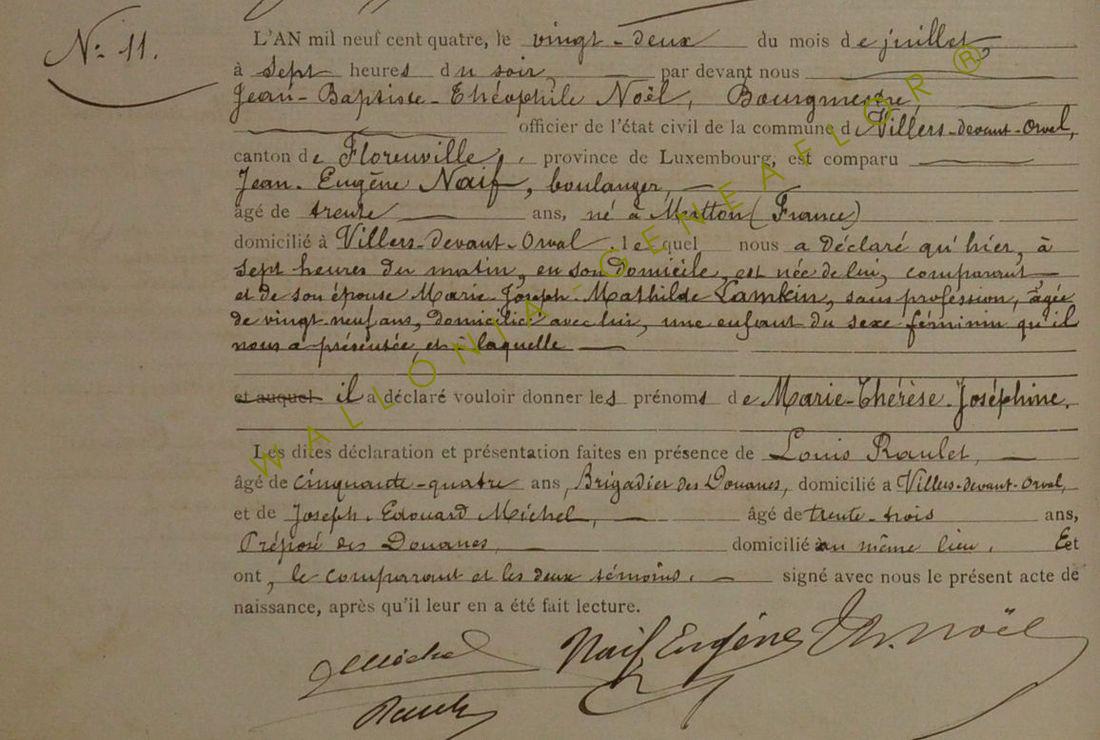 N° 11.
L'AN mil neuf cent quatre, le vingt-deux du mois de juillet,
à sept heures du soir, par devant nous
Jean-Baptiste-Théophile Noël, Bourgmestre,
officier de l'état civil de la commune d Villers-devant-Orval,
canton de Florenville, province de Luxembourg, est comparu
Jean-Eugène Naif, boulanger,
âgé de trente ans, né à Matton (France)
domicilié à Villers-devant-Orval. lequel nous a déclaré qu'hier, à
sept heures du matin, en son domicile, est née de lui, comparant
et de son épouse Marie-Joseph-Mathilde Lamkin, sans profession, âgée
de vingt-neuf ans, domiciliée avec lui, une enfant du sexe féminin qu'il
nous a présentée et à laquelle
et auquel il a déclaré vouloir donner les prénoms de Marie-Thérèse-Joséphine.
Les dites déclaration et présentation faites en présence de Louis Raulet,
âgé de cinquante-quatre ans, Brigadier des Douanes, domicilié a Villers-devant-Orval,
et de Joseph-Edouard Michel, âgé de trente-trois ans,
Préposé des Douanes, domicilié au même lieu. Eet
ont, le comparant et les deux témoins. signé avec nous le présent acte de
naissance, après qu'il leur en a été fait lecture.
Michel Naif Eugène Th. Noël
Raulet
WALLONIA-GENEAFLOR®